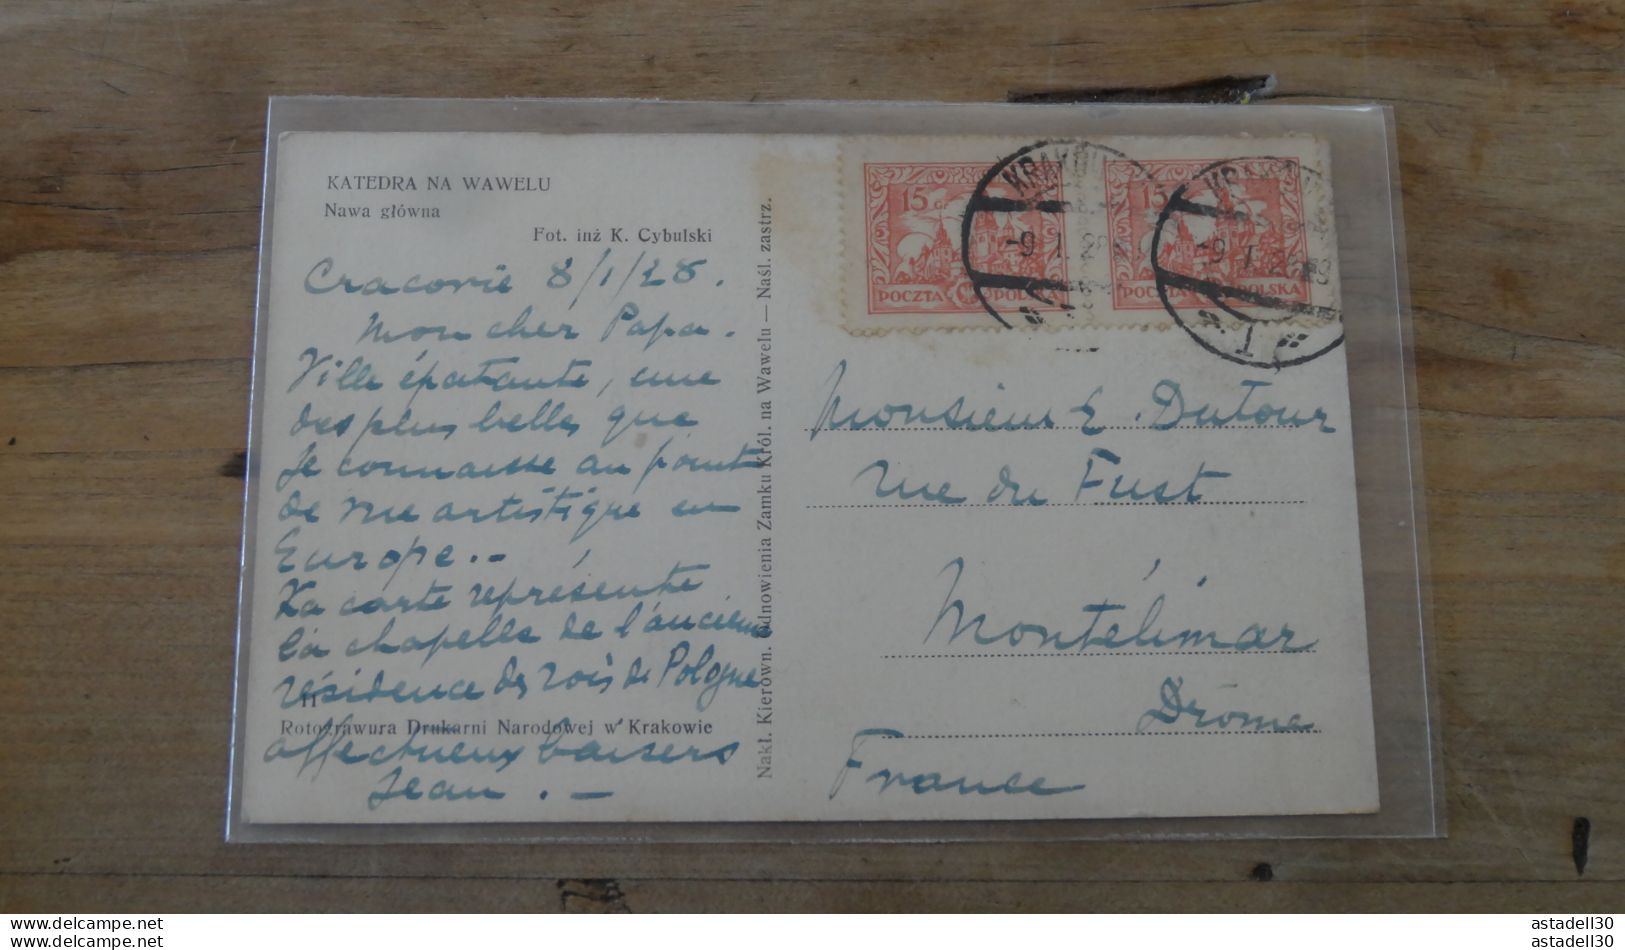 KATEDRA NA WAWELU
Nawa główna
Fot. inż K. Cybulski
Cracovie 8/1/28.
Mon cher Papa.
Ville épatante, une
des plus belles que
je connaisse au point
de vue artistique en
Europe. -
La carte représente
la chapelle de l'ancienne
résidence des rois de Pologne
11
Rotograwura Drukarni Narodowej w Krakowie
affectueux baisers
Jean . -
Nakł. Kierown. Odnowienia Zamku Król. na Wawelu — Naśl. zastrz.
15 gr
POCZTA POLSKA
15
POCZTA POLSKA
KRAKÓW
-9.I.28
KRAKÓW
-9.I.28
1
Monsieur E. Dutour
rue du Fust
Montélimar
Drôme
France
astadell30
astadell30
astadell30
astadell30